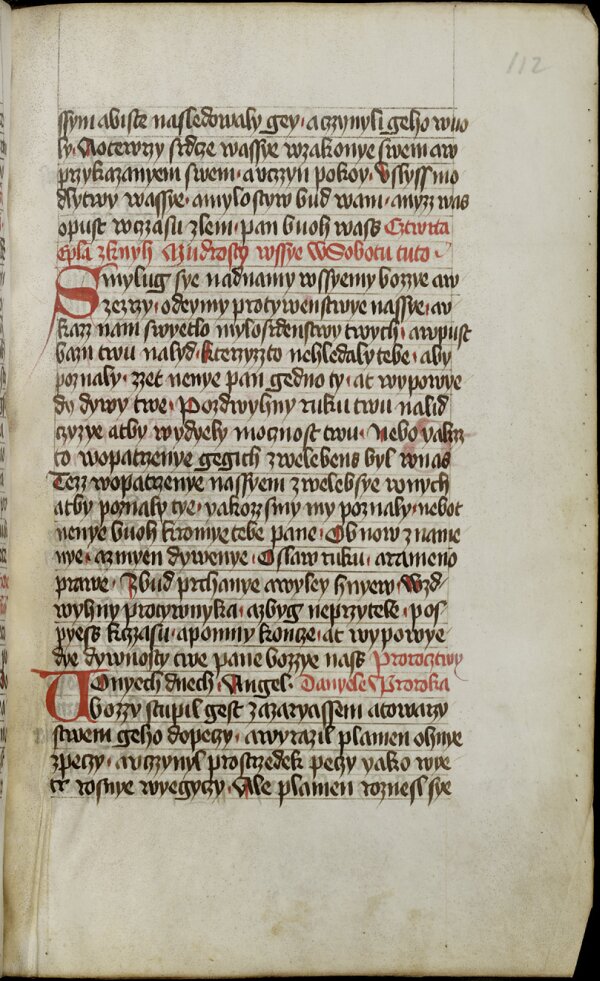 112
ssym abiste nasledowaly gey · a czynyli geho wuo
ly · A otewrzy srdcze wassye wzakonye swem a w
przykazanyem swem · a uczyn pokoy · Uslyss mo
dlytwy wassye · a mylostyw bud wam · a nyzz was
opust wczasu zlem · pan buoh wass Cztwrta
Epla zknyh Mudrosty wssye W Sobotu tuto ·
Smylug sye nad namy wssyemy bozzye a w
zezrzy · odeymy protywenstwye nassye · a u
kazz nam swyetlo mylosrdenstwy twych · a wpust
bazn twu na lyd · kteryzzto nehledaly tebe · aby
poznaly · zzet nenye pan gedno ty · at wypowye
dy dywy twe · Pozdwyhny ruku twu na lid
czyzye atby wydyely mocznost twu · Nebo yakzz
to wopatrzenye gegich zwelebens byl w nas
Tezz wopatrzenye nassyem zwelebsye wonych
atby poznaly tye · yakozz smy my poznaly · nebot
nenye buoh kromye tebe pane · Obnow zname
nye · a zmyen dywenye · Oslaw ruku · a rameno
prawe · Zbud prchanye a wyley hnyew · Wzd
wyhny protywnyka · a zbyg neprzytele · pos
pyess kczasu · a pomny koncze · at wypowye
dye dywnosty twe pane bozzye nass Prorocztwy
W onyech dnech · Angel · Danyele Proroka
bozzy stupil gest z azaryassem a towarzy
stwem geho do peczy · a wyrazil plamen ohnye
z peczy · a uczynyl prostrzedek peczy yako wye
tr rosnye wyegyczy · Ale plamen roznesl sye